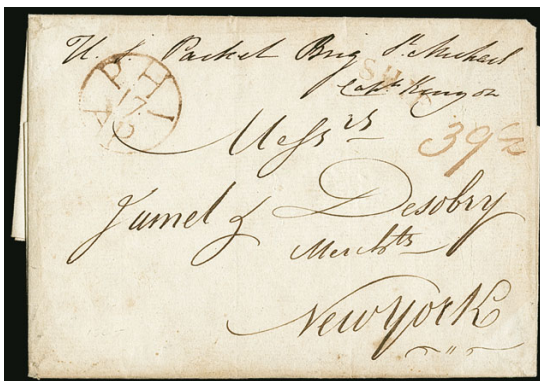 U. S. Packet Brig St. Michael
Capt. Kenyon
PHI
17
SHIP
Messrs
39½
Jumel & Desobry
Merchts
New York